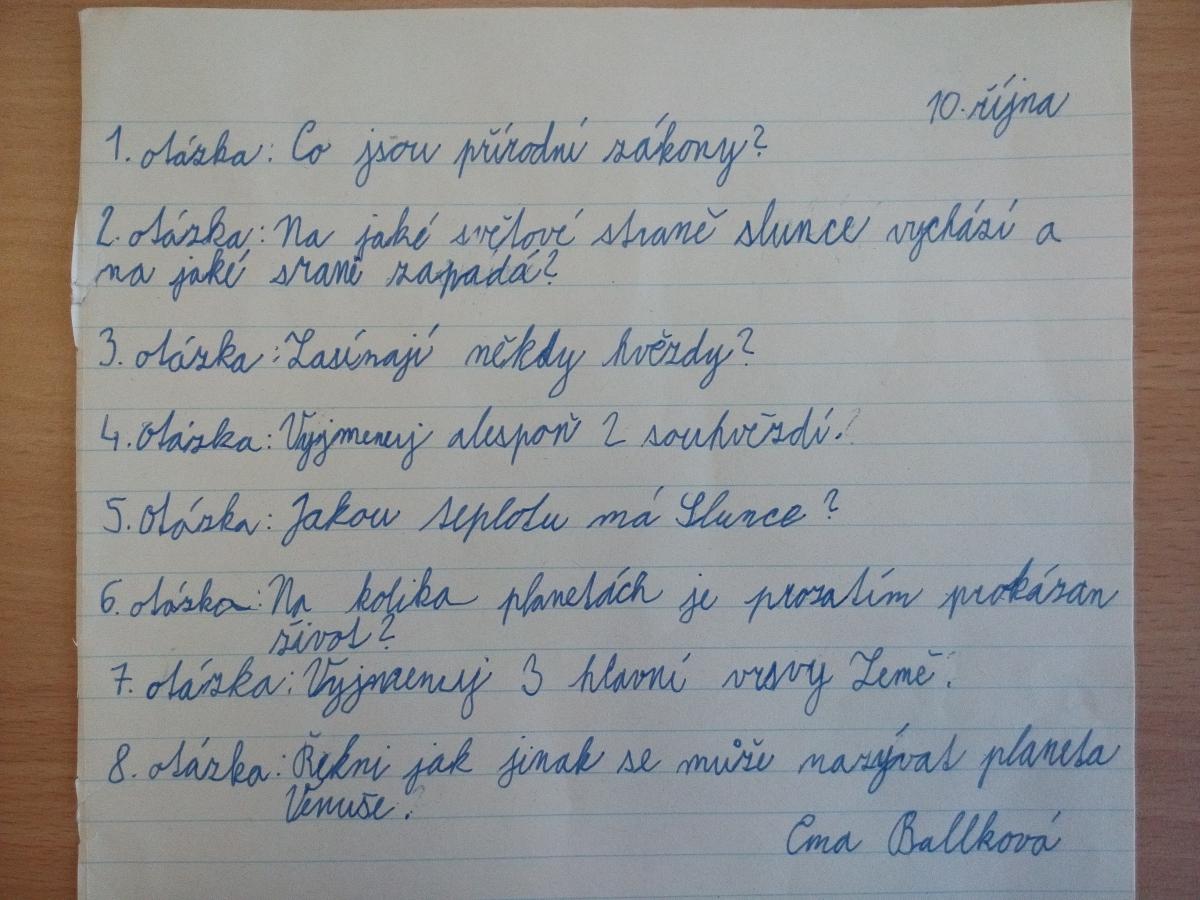 10. října
1. otázka: Co jsou přírodní zákony?
2. otázka: Na jaké světové straně slunce vychází a
na jaké sraně zapadá?
3. otázka: Zasínají někdy hvězdy?
4. Otázka: Vyjmenuj alespoň 2 souhvězdí.
5. Otázka: Jakou teplotu má Slunce?
6. otázka: Na kolika planetách je prozatím prokázan
život?
7. otázka: Vyjmenuj 3 hlavní vrsvy Země.
8. otázka: Řekni jak jinak se může nazývat planeta
Venuše.
Ema Ballková